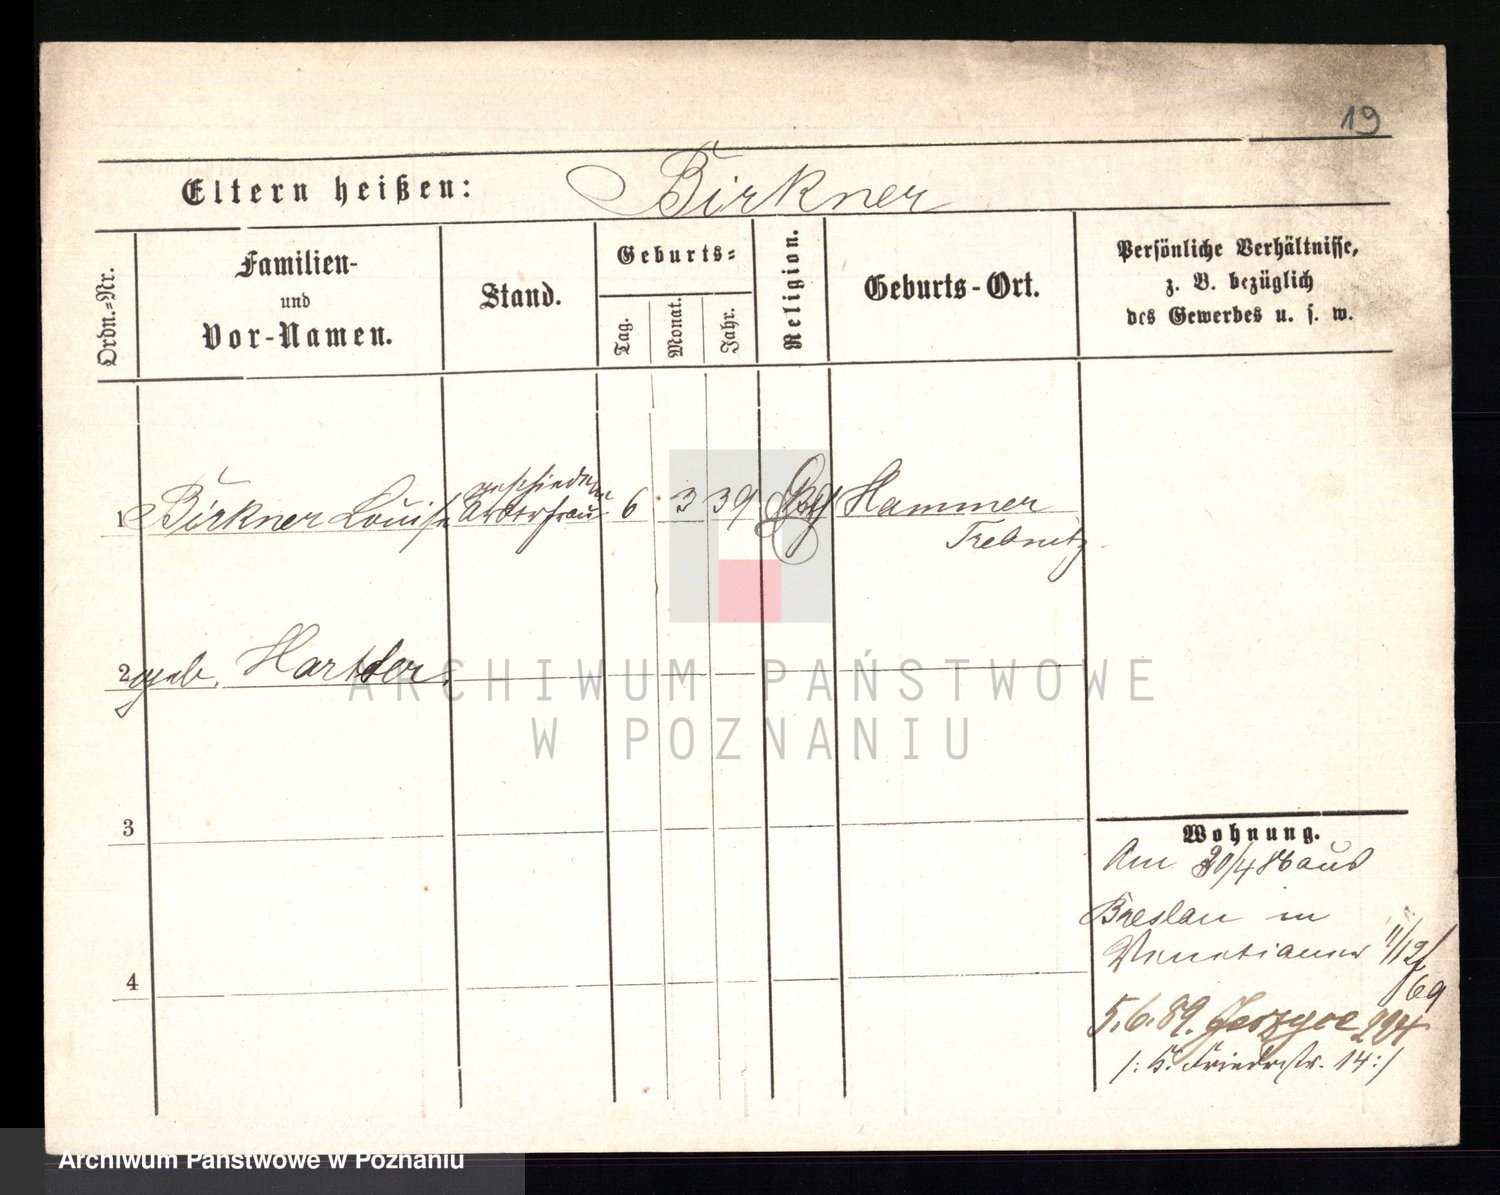 19
Eltern heißen: Birkner
Ordn.-Nr.
Familien-
und
Vor-Namen.
Stand.
Geburts-
Tag.
Monat.
Jahr.
Religion.
Geburts-Ort.
Persönliche Verhältnisse,
z. B. bezüglich
des Gewerbes u. s. w.
geschiedene
1 Birkner Louise 6 3 39 Hammer
Trebnitz
2 geb. Hartder.
ARCHIWUM PAŃSTWOWE
W POZNANIU
3
Wohnung.
Am 20/4 86 aus
Breslau in
Venetianer 11/12
/69
4
5.6.89. 224
Friedrstr. 14:/
Archiwum Państwowe w Poznaniu